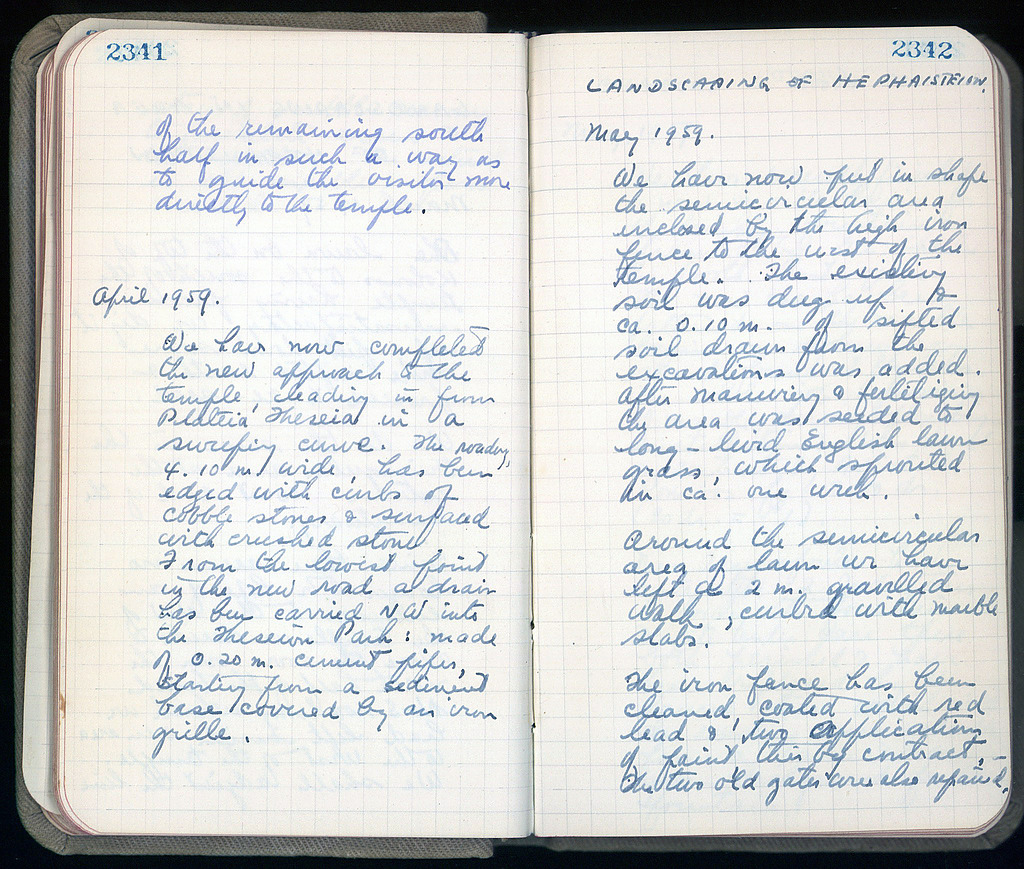 2341
of the remaining south
half in such a way as
to guide the visitor more
directly to the temple.
April 1959.
We have now completed
the new approach to the
temple, leading in from
Plateia Theseia in a
sweeping curve. The roadway,
4.10 m. wide, has been
edged with curbs of
cobble stones & surfaced
with crushed stone.
From the lowest point
in the new road a drain
has been carried NW into
the Theseion Park: made
of 0.20 m. cement pipes,
starting from a sediment
base covered by an iron
grille.
2342
LANDSCAPING OF HEPHAISTEION.
May 1959.
We have now put in shape
the semicircular area
enclosed by the high iron
fence to the west of the
temple. The existing
soil was dug up &
ca. 0.10 m. of sifted
soil drawn from the
excavations was added.
After manuring & fertilizing
the area was seeded to
long-lived English lawn
grass, which sprouted
in ca. one week.
Around the semicircular
area of lawn we have
left a 2 m. gravelled
walk, curbed with marble
slabs.
The iron fence has been
cleaned, coated with red
lead & two applications
of paint, this by contract.
The two old gates were also repaired.